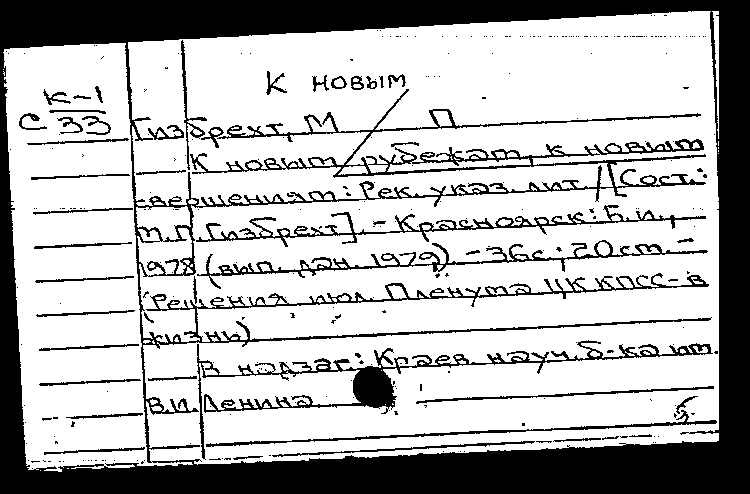 К новым
К-1
С 33 Гизбрехт, М П
К новым рубежам, к новым
свершениям: Рек. указ. лит. /[Сост.:
М.П. Гизбрехт]. – Красноярск: Б.и.,
1978 (вып. дан. 1979). – 36с; 20см. –
(Решения июл. Пленума ЦК КПСС – в
жизнь)
В надзаг.: Краев. науч. б-ка им.
В.И. Ленина